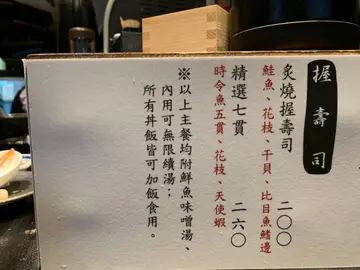 握壽司
炙燒握壽司 二〇〇
鮭魚、花枝、干貝、比目魚鰭邊
精選七貫 二六〇
時令魚五貫、花枝、天使蝦
※以上主餐均附鮮魚味噌湯、
內用可無限續湯；
所有丼飯皆可加飯食用。